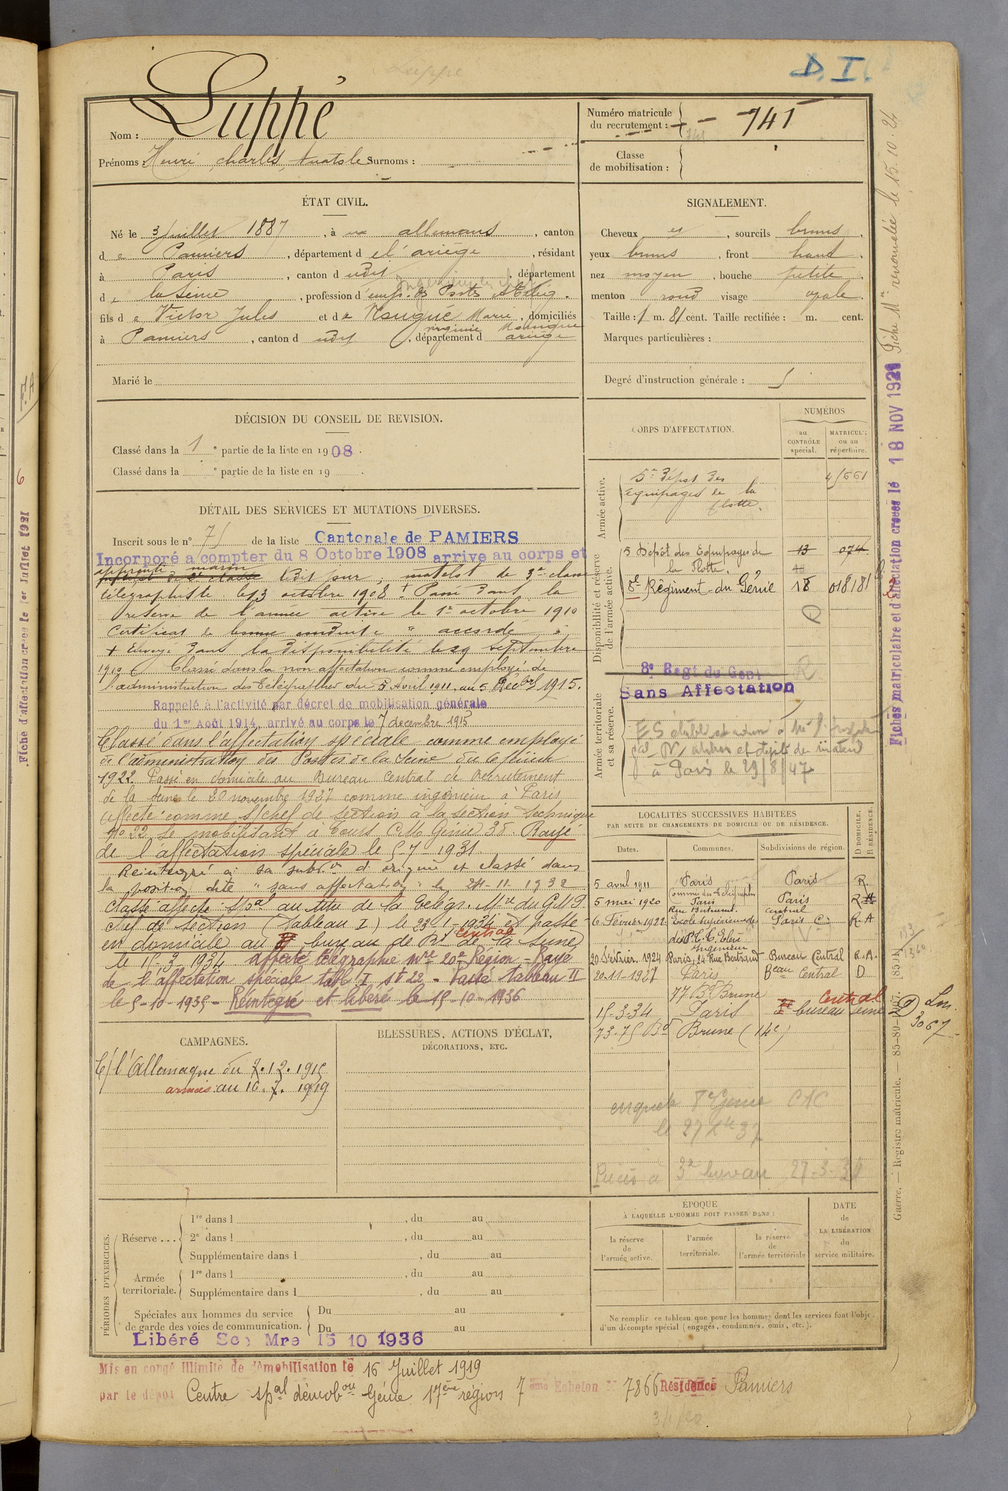 D. I
Luppé
Nom :
Prénoms : Henri, Charles, Anatole Surnoms :
Numéro matricule
du recrutement : 741
Classe
de mobilisation :
ÉTAT CIVIL.
Né le 3 juillet 1887, à allemans, canton
de Pamiers, département de l'ariège, résidant
à Paris, canton d udit, département
de la Seine, profession d'empl. des Postes et Télég.
fils de Victor Jules et de Rougué Marie, domiciliés
à Pamiers, canton d udit, département d ariège
Marié le
SIGNALEMENT.
Cheveux et, sourcils bruns,
yeux bruns, front haut
nez moyen, bouche petite
menton rond visage ovale
Taille : 1 m. 81 cent. Taille rectifiée : m. cent.
Marques particulières :
Degré d'instruction générale :
DÉCISION DU CONSEIL DE REVISION.
Classé dans la 1re partie de la liste en 1908.
Classé dans la e partie de la liste en 19
DÉTAIL DES SERVICES ET MUTATIONS DIVERSES.
Inscrit sous le n° 71 de la liste Cantonale de PAMIERS
Incorporé a compter du 8 Octobre 1908 arrivé au corps et
apprenti marin
ledit jour, matelot de 3e classe
télégraphiste le 3 octobre 1908. Passé dans la
réserve de l'armée active le 1er octobre 1910
Certificat de bonne conduite "accordé"
+ Envoyé dans la disponibilité le 29 septembre
1910. Classé dans la non affectation comme employé de
l'administration des Télégraphes du 5 Avril 1911 au 5 Décbre 1915.
Rappelé à l'activité par décret de mobilisation générale
du 1er Août 1914, arrivé au corps le 7 décembre 1915
Classé dans l'affectation spéciale comme employé
de l'administration des Postes de la Seine du
1922. Passé en domicile au Bureau Central de Recrutement
de la Seine le 20 novembre 1927 comme ingénieur à Paris
affecté comme s/chef de section à la section technique
n° 22 se mobilisant à Tours C.M. Génie 38. Rayé
de l'affectation spéciale le 5-7-1931.
Réintégré à sa subdon d'origine et classé dans
la position dite "sans affectation" le 24-11-1932
classé affecté spal au titre de la Télégr. Mre du G.M.P.
chef de section (Tableau I) le 23-1-1934 et passé
en domicile au bureau de Rt central de la Seine
le 15-3-1934 affecté télégraphie Mre 20e Région - Rayé
de l'affectation spéciale tabl I - Passé tableau II
le 5-10-1935 - Réintégré et libéré le 15-10-1936
CORPS D'AFFECTATION.
NUMÉROS
au
CONTRÔLE
spécial.
MATRICULE
ou au
répertoire.
Armée active.
5e Dépôt des
équipages de la
flotte.
Disponibilité et réserve
de l'armée active.
5 Dépôt des Equipages de
la Flotte.
8e Régiment du Génie 18 018181
Armée territoriale
et sa réserve.
8e Regt du Génie
Sans Affectation
à Paris le 29/8/47
LOCALITÉS SUCCESSIVES HABITÉES
PAR SUITE DE CHANGEMENTS DE DOMICILE OU DE RÉSIDENCE.
Dates. Communes. Subdivisions de région. D DOMICILE. R RÉSIDENCE.
5 avril 1911 Paris Paris R
5 mai 1920 Paris Paris R
6 Février 1922 Ecole supérieure Paris C. R.A
des P.T.T. Elève
Ingénieur
20 Février 1924 Paris, 24 Rue Bertrand Bureau Central R.A.
20.11.1927 Paris Beau Central D
77 Bd Brune
15-3-34 Paris bureau Central Seine D
73-75 Bd Brune (14e)
CAMPAGNES.
C/ l'Allemagne du 7.12.1915
armées au 16.7.1919
BLESSURES, ACTIONS D'ÉCLAT,
DÉCORATIONS, ETC.
enquête 8e Génie
PÉRIODES D'EXERCICES.
Réserve .... 1re dans l , du au
2e dans l , du au
Supplémentaire dans l , du au
Armée
territoriale. 1re dans l , du au
Supplémentaire dans l , du au
Spéciales aux hommes du service
de garde des voies de communication. Du au
Du au
Libéré Sce Mre 15 10 1936
ÉPOQUE
À LAQUELLE L'HOMME DOIT PASSER DANS :
la réserve
de
l'armée active.
l'armée
territoriale.
la réserve
de
l'armée territoriale
DATE
de
LA LIBÉRATION
du
service militaire.
Ne remplir ce tableau que pour les hommes dont les services font l'objet
d'un décompte spécial (engagés, condamnés, omis, etc.).
Mis en congé illimité de démobilisation le 16 Juillet 1919
par le dépôt Centre spal démobon Génie 17ème région 7ème Echelon N° 7866 Résidence Pamiers
Fiche Mle renouvelée le 15.10.24
Fiches matriculaire et d'affectation créées le 18 NOV 1921
Guerre. — Registre matricule.